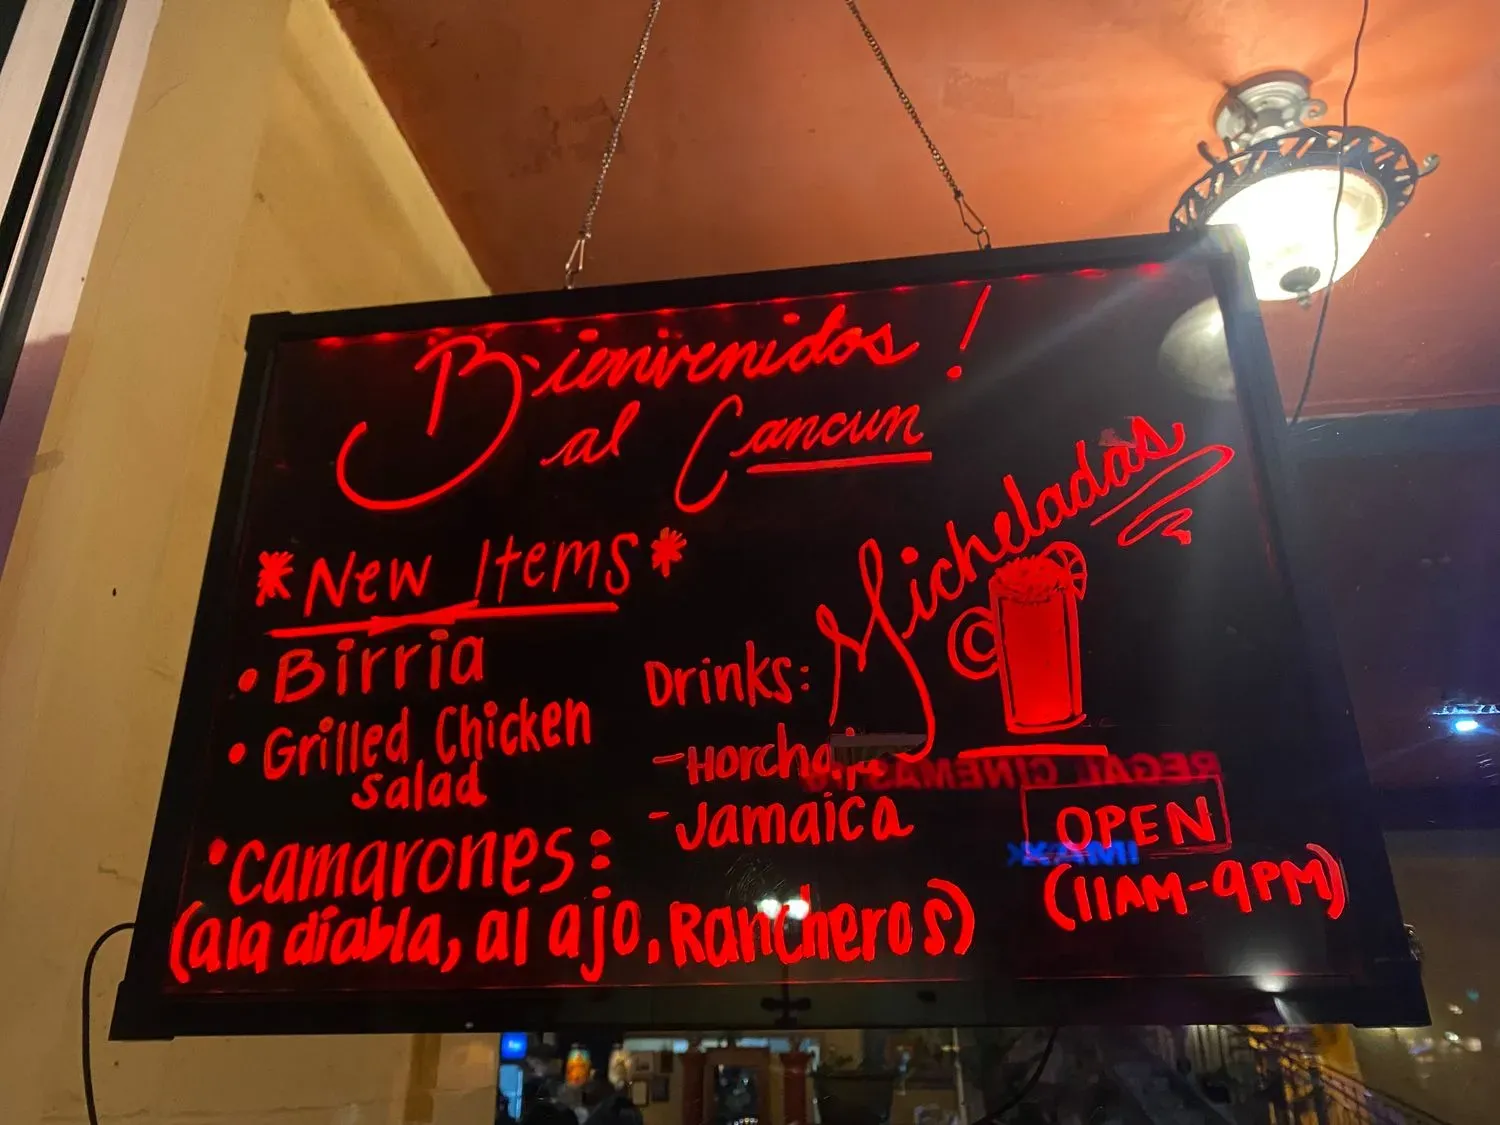 Bienvenidos!
al Cancun
*New Items*
• Birria
• Grilled Chicken
salad
• Camarones:
(ala diabla, al ajo, Rancheros)
Micheladas
Drinks:
- Jamaica
REGAL CINEMAS
IMAX
OPEN
(11AM-9PM)